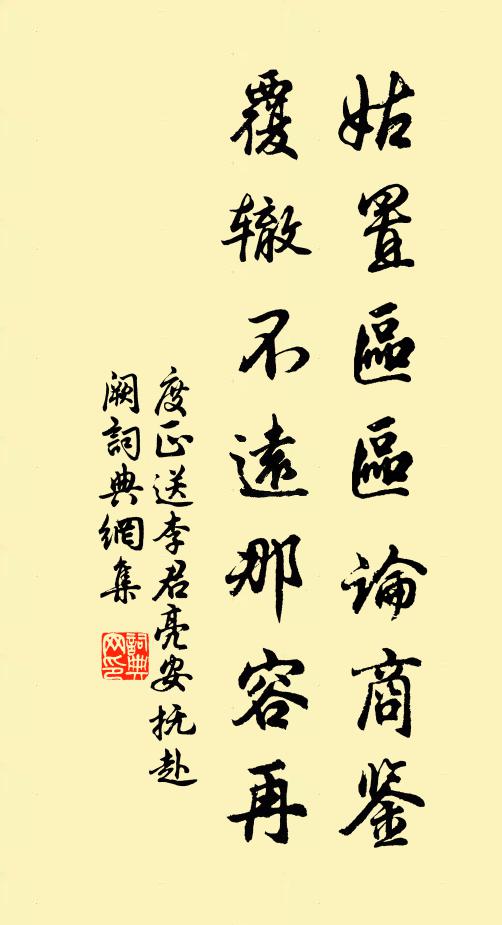 姑置區區論商鉴
覆辙不遠那容再
度正送李君亮安抚赴
阙詞典網集
詞典网印